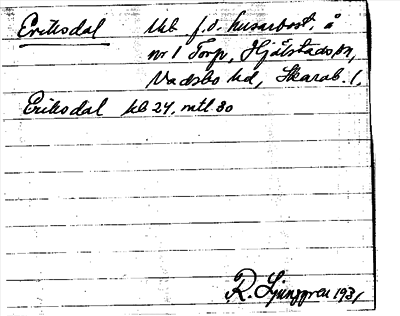 Eriksdal lhb f.d. husarbost. å
nr 1 Torp, Hjälstads sn,
Vadsbo hd, Skarab. l.
Eriksdal kb 24, mtl. 80
R. Ljunggren 1931